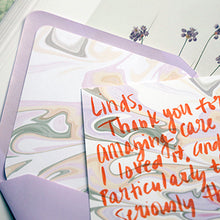 Linds,
Thank you for
amazing care
I loved it, and
Particularly
Seriously